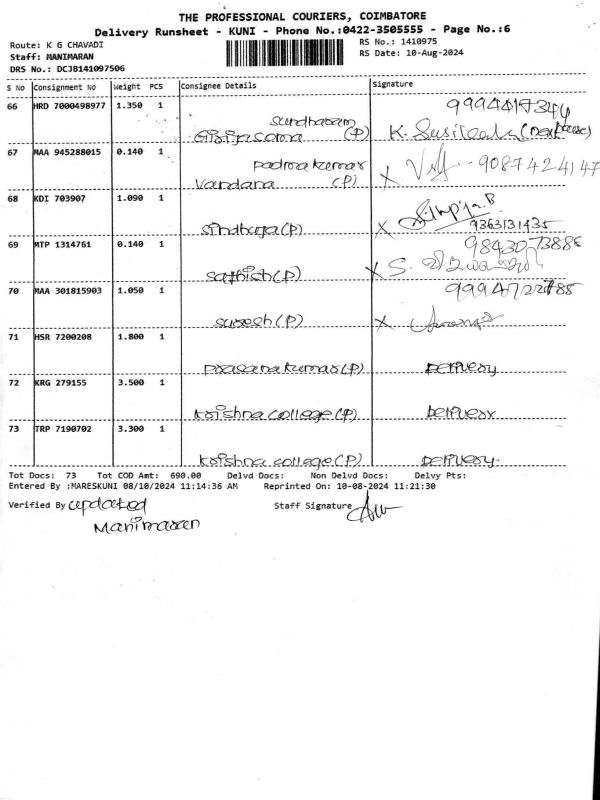 THE PROFESSIONAL COURIERS, COIMBATORE
Delivery Runsheet - KUNI - Phone No.:0422-3505555 - Page No.:6
Route: K G CHAVADI RS No.: 1410975
Staff: MANIMARAN RS Date: 10-Aug-2024
DRS No.: DCJB141097506
S No Consignment No Weight PCS Consignee Details Signature
66 HRD 7000498977 1.350 1
Sundharam
(P) K. Susileela
67 MAA 945288015 0.140 1
Padma kumar
Vandana (P) X 9087424147
68 KDI 703907 1.090 1
Sindhuja(P) X 9363131435
69 MTP 1314761 0.140 1
Sathish(P) X S.
70 MAA 301815903 1.050 1
Suresh(P) X
71 HSR 7200208 1.800 1
Prasana kumar(P) Delivery
72 KRG 279155 3.500 1
Krishna college(P) Delivery
73 TRP 7190702 3.300 1
Krishna college(P) Delivery
Tot Docs: 73 Tot COD Amt: 690.00 Delvd Docs: Non Delvd Docs: Delvy Pts:
Entered By :MARESKUNI 08/10/2024 11:14:36 AM Reprinted On: 10-08-2024 11:21:30
Verified By updated Staff Signature
Manimaran